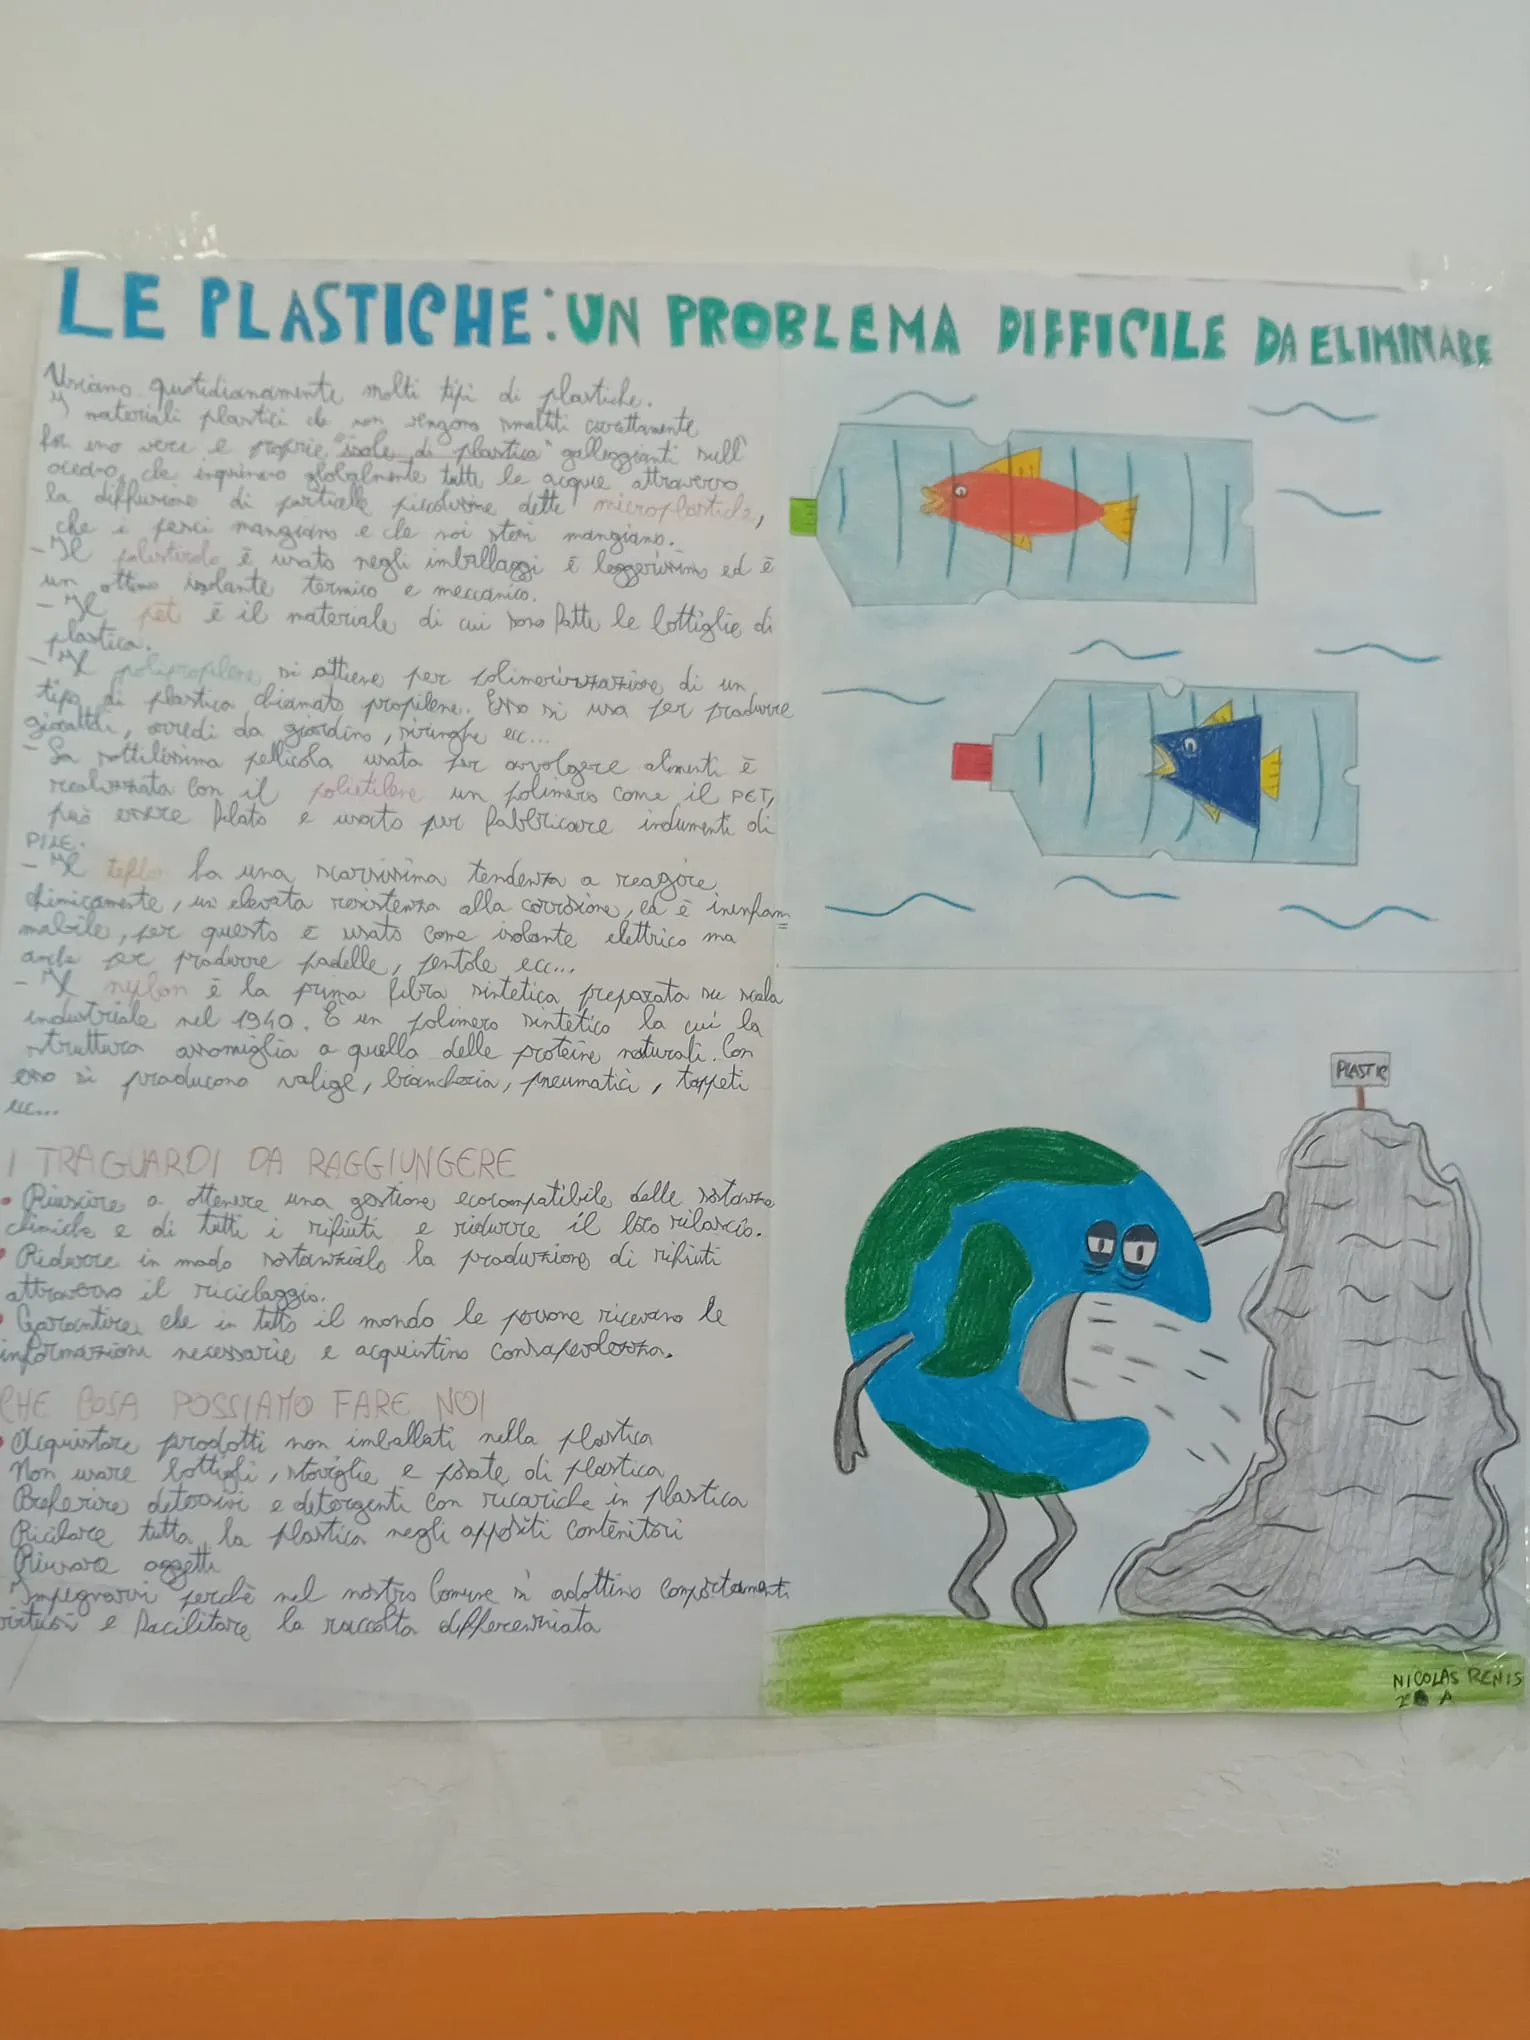 LE PLASTICHE: UN PROBLEMA DIFFICILE DA ELIMINARE
Usiamo quotidianamente molti tipi di plastiche.
I materiali plastici che non vengono smaltiti correttamente
formano vere e proprie "isole di plastica" galleggianti sull'
oceano, che inquinano globalmente tutte le acque attraverso
la diffusione di particelle piccolissime dette microplastiche,
che i pesci mangiano e che noi stessi mangiamo.
- Il polistirolo è usato negli imballaggi è leggerissimo ed è
un ottimo isolante termico e meccanico.
- Il pet è il materiale di cui sono fatte le bottiglie di
plastica.
- Il polipropilene si ottiene per polimerizzazione di un
tipo di plastica chiamato propilene. Esso si usa per produrre
giocattoli, arredi da giardino, siringhe ecc...
- La sottilissima pellicola usata per avvolgere alimenti è
realizzata con il polietilene un polimero come il PET,
può essere filato e usato per fabbricare indumenti di
PILE.
- Il teflon ha una scarsissima tendenza a reagire
chimicamente, un'elevata resistenza alla corrosione, ed è ininfiam
mabile, per questo è usato come isolante elettrico ma
anche per produrre padelle, pentole ecc...
- Il nylon è la prima fibra sintetica preparata su scala
industriale nel 1940. È un polimero sintetico la cui la
struttura assomiglia a quella delle proteine naturali. Con
esso si producono valige, biancheria, pneumatici, tappeti
ecc...
I TRAGUARDI DA RAGGIUNGERE
• Riuscire a ottenere una gestione ecocompatibile delle sostanze
chimiche e di tutti i rifiuti e ridurre il loro rilascio.
• Ridurre in modo sostanziale la produzione di rifiuti
attraverso il riciclaggio.
• Garantire che in tutto il mondo le persone ricevano le
informazioni necessarie e acquistino consapevolezza.
CHE COSA POSSIAMO FARE NOI
• Acquistare prodotti non imballati nella plastica
Non usare bottigli, stoviglie e posate di plastica
Preferire detersivi e detergenti con ricariche in plastica
Riciclare tutta la plastica negli appositi contenitori
Riusare oggetti
Impegnarvi perchè nel nostro Comune si adottino comportamenti
virtuosi e facilitare la raccolta differenziata
PLASTIC
NICOLAS RENIS
2 A